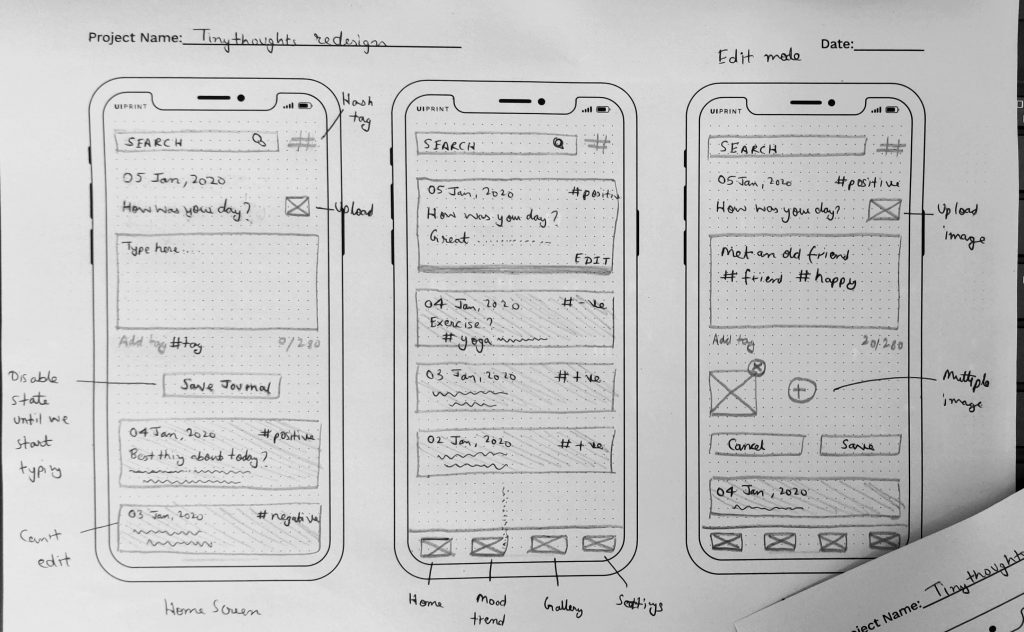 Project Name: Tinythoughts redesign
Date:
Edit mode
UIPRINT
SEARCH
#
Hash
tag
05 Jan, 2020
How was your day?
Upload
Type here...
Add tag #tag
0/280
Save Journal
Disable
state
until we
start
typing
04 Jan, 2020
#positive
Best thing about today?
03 Jan, 2020
#negative
Can't
edit
Home Screen
UIPRINT
SEARCH
#
05 Jan, 2020
#positive
How was your day?
Great ............
EDIT
04 Jan, 2020
#-ve
Exercise?
#yoga
03 Jan, 2020
#+ve
02 Jan, 2020
#+ve
Home
Mood
trend
Gallery
Settings
UIPRINT
SEARCH
#
05 Jan, 2020
#positive
How was your day?
Upload
image
Met an old friend
#friend #happy
Add tag
20/280
Multiple
image
Cancel
Save
04 Jan, 2020
Tinythoughts
ject Name: